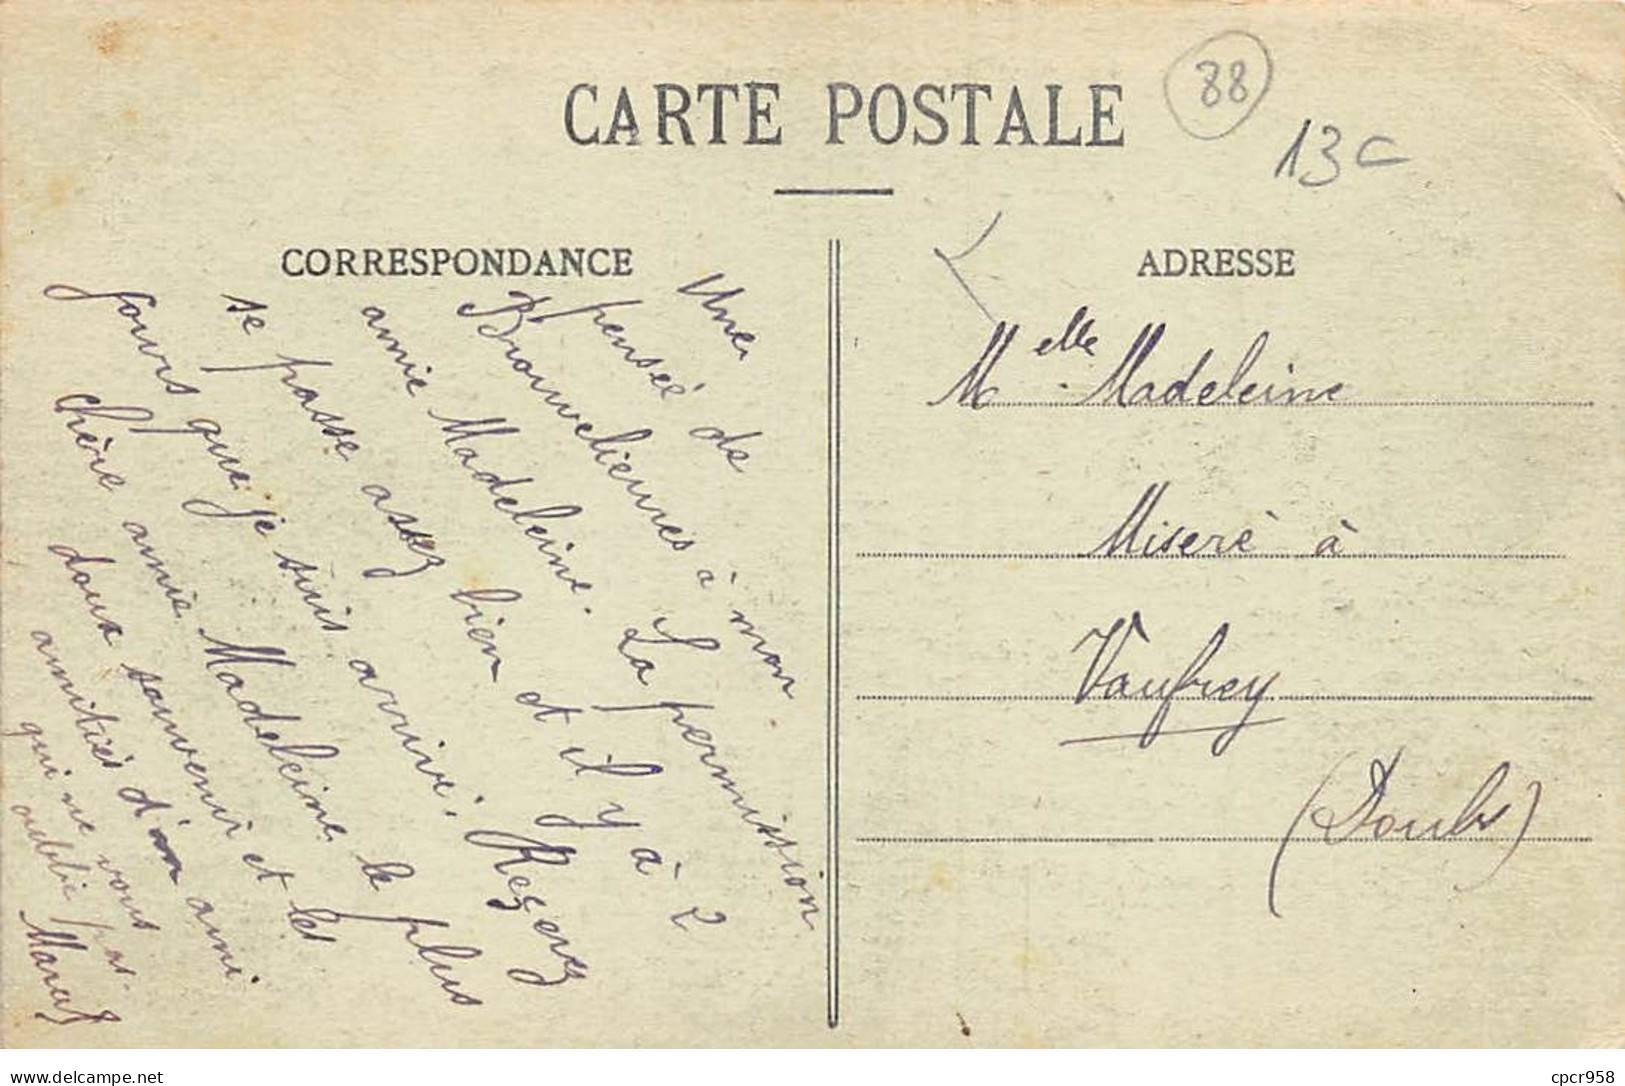 CARTE POSTALE
88
13c
CORRESPONDANCE
Une
pensée de
Brouvelieures à mon
amie Madeleine. La permission
se passe assez bien et il y à 2
jours que je suis arrivé. Reçevez
chère amie Madeleine le plus
doux souvenir et les
amitiés d'un ami
qui ne vous
oublie pas.
ADRESSE
Melle Madeleine
Miseré à
Vaufrey
(Doubs)
delcampe.net
cpcr958